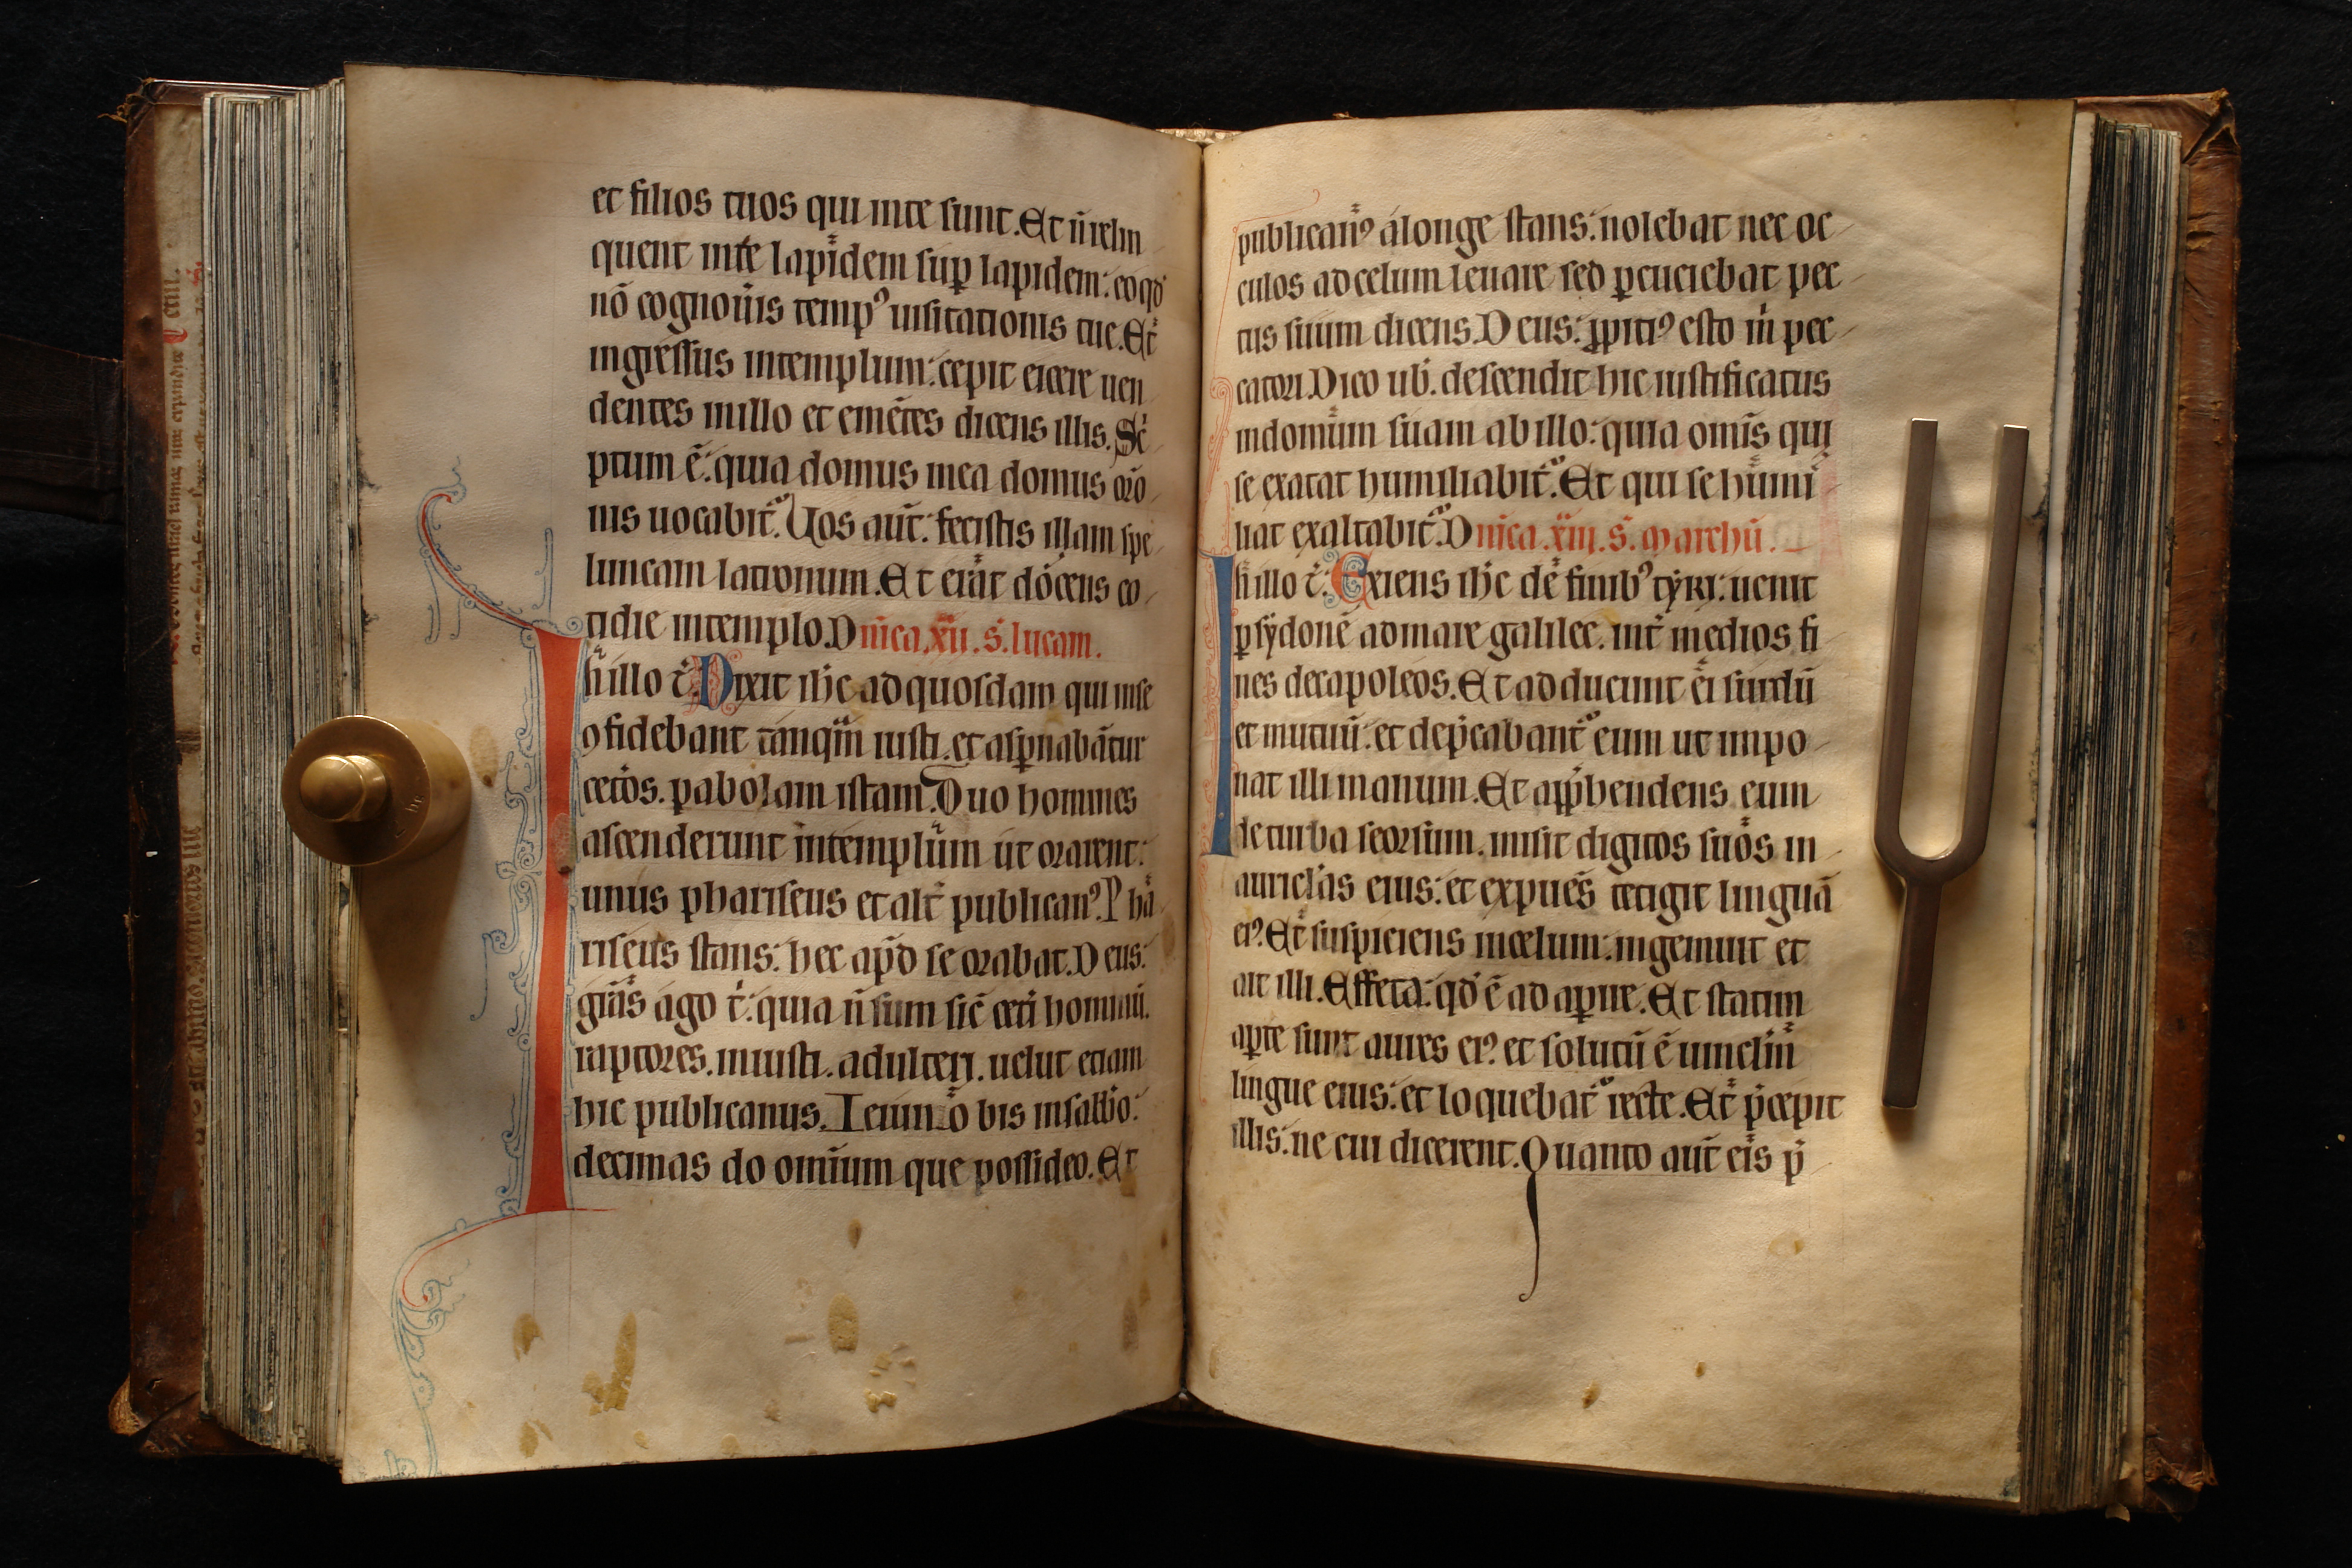 et filios tuos qui inte sunt. Et n̄ relin
quent inte lapidem sup̱ lapidem: eo qd̓
nō cognouis temp᾽ uisitationis tue. Et
ingressus intemplum: cepit eicere uen
dentes inillo et emētes dicens illis. Sc̓
ptum ē: quia domus mea domus orō
nis uocabit᷒. Uos aūt: fecistis illam spe
luncam latronum. Et erat docens co
tidie intemplo. Dn̄ica. xii. s̄. lucam.
In illo t̄: Dixit ih̄c ad quosdam qui inse
ꝯfidebant tanqm̄ iusti. et asp̱nabātur
cetos. p̱abolam istam. Duo homines
ascenderunt intemplum ut orarent:
unus phariseus et alt̄ publican᾽. Pha
riseus stans: hec apd̄ se orabat. Deus:
grās ago t̓: quia n̄ sum sic̄ cet̓i hominū.
raptores. iniusti. adulteri. uelut etiam
hic publicanus. Ieiuno bis insabb̄o:
decimas do omīum que possideo. Et
publican᾽ alonge stans: nolebat nec oc
culos ad celum leuare sed p̱cuciebat pec
tus suum dicens. Deus: ꝓpiti᾽ esto m̓ pec
catori. Dico ub̓. descendit hic iustificatus
indomum suam ab illo: quia omīs qui
se exatat humiliabit᷒. Et qui se humi
liat exaltabit᷒. Dn̄ica. xiii. s̄. marchū.
In illo t̄: Exiens ih̄c de finib᾽ tẏri: uenit
p̱ sẏdonē ad mare galilee. int̓ medios fi
nes decapoleos. Et adducunt ei surdū
et mutuū: et dep̄cabant᷒ eum ut impo
nat illi manum. Et app̄hendens eum
de turba seorsum. misit digitos suos in
auric̄las eius: et expuēs tetigit linguā
ei᾽. Et suspiciens incelum: ingemuit et
ait illi. Effeta: qd̓ ē ad ap̱ire. Et statim
ap̱te sunt aures ei᾽. et solutū ē uinclm̄
lingue eius: et loquebat᷒ recte. Et p̄cepit
illis: ne cui dicerent. Quanto aūt eis p̄